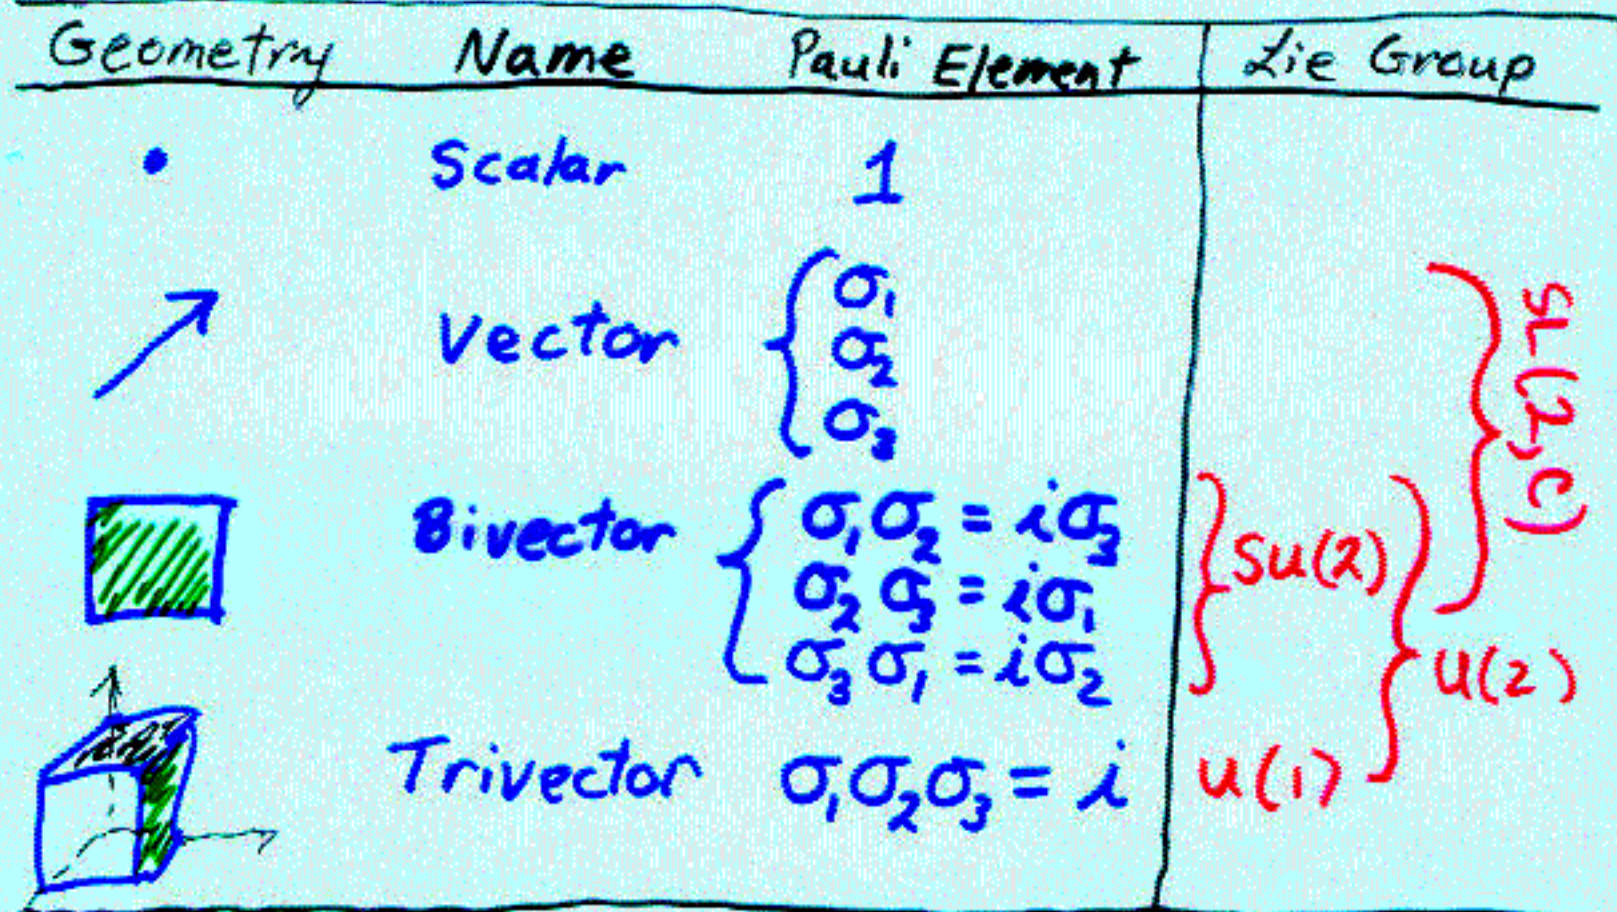 Geometry Name Pauli Element Lie Group
Scalar 1
Vector σ₁
σ₂
σ₃
SL(2,C)
Bivector σ₁σ₂ = iσ₃
σ₂σ₃ = iσ₁
σ₃σ₁ = iσ₂
SU(2)
U(2)
Trivector σ₁σ₂σ₃ = i U(1)